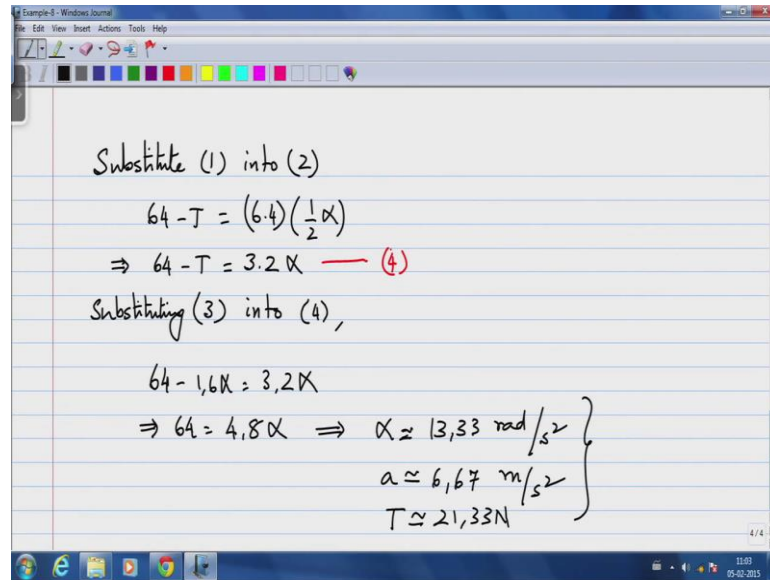 Example-8 - Windows Journal
File Edit View Insert Actions Tools Help
Substitute (1) into (2)
64 - T = (6.4)(1/2 α)
⇒ 64 - T = 3.2 α —— (4)
Substituting (3) into (4),
64 - 1,6α = 3,2α
⇒ 64 = 4,8α ⇒ α ≃ 13,33 rad/s²
a ≃ 6,67 m/s²
T ≃ 21,33N
4/4
11:03
05-02-2015